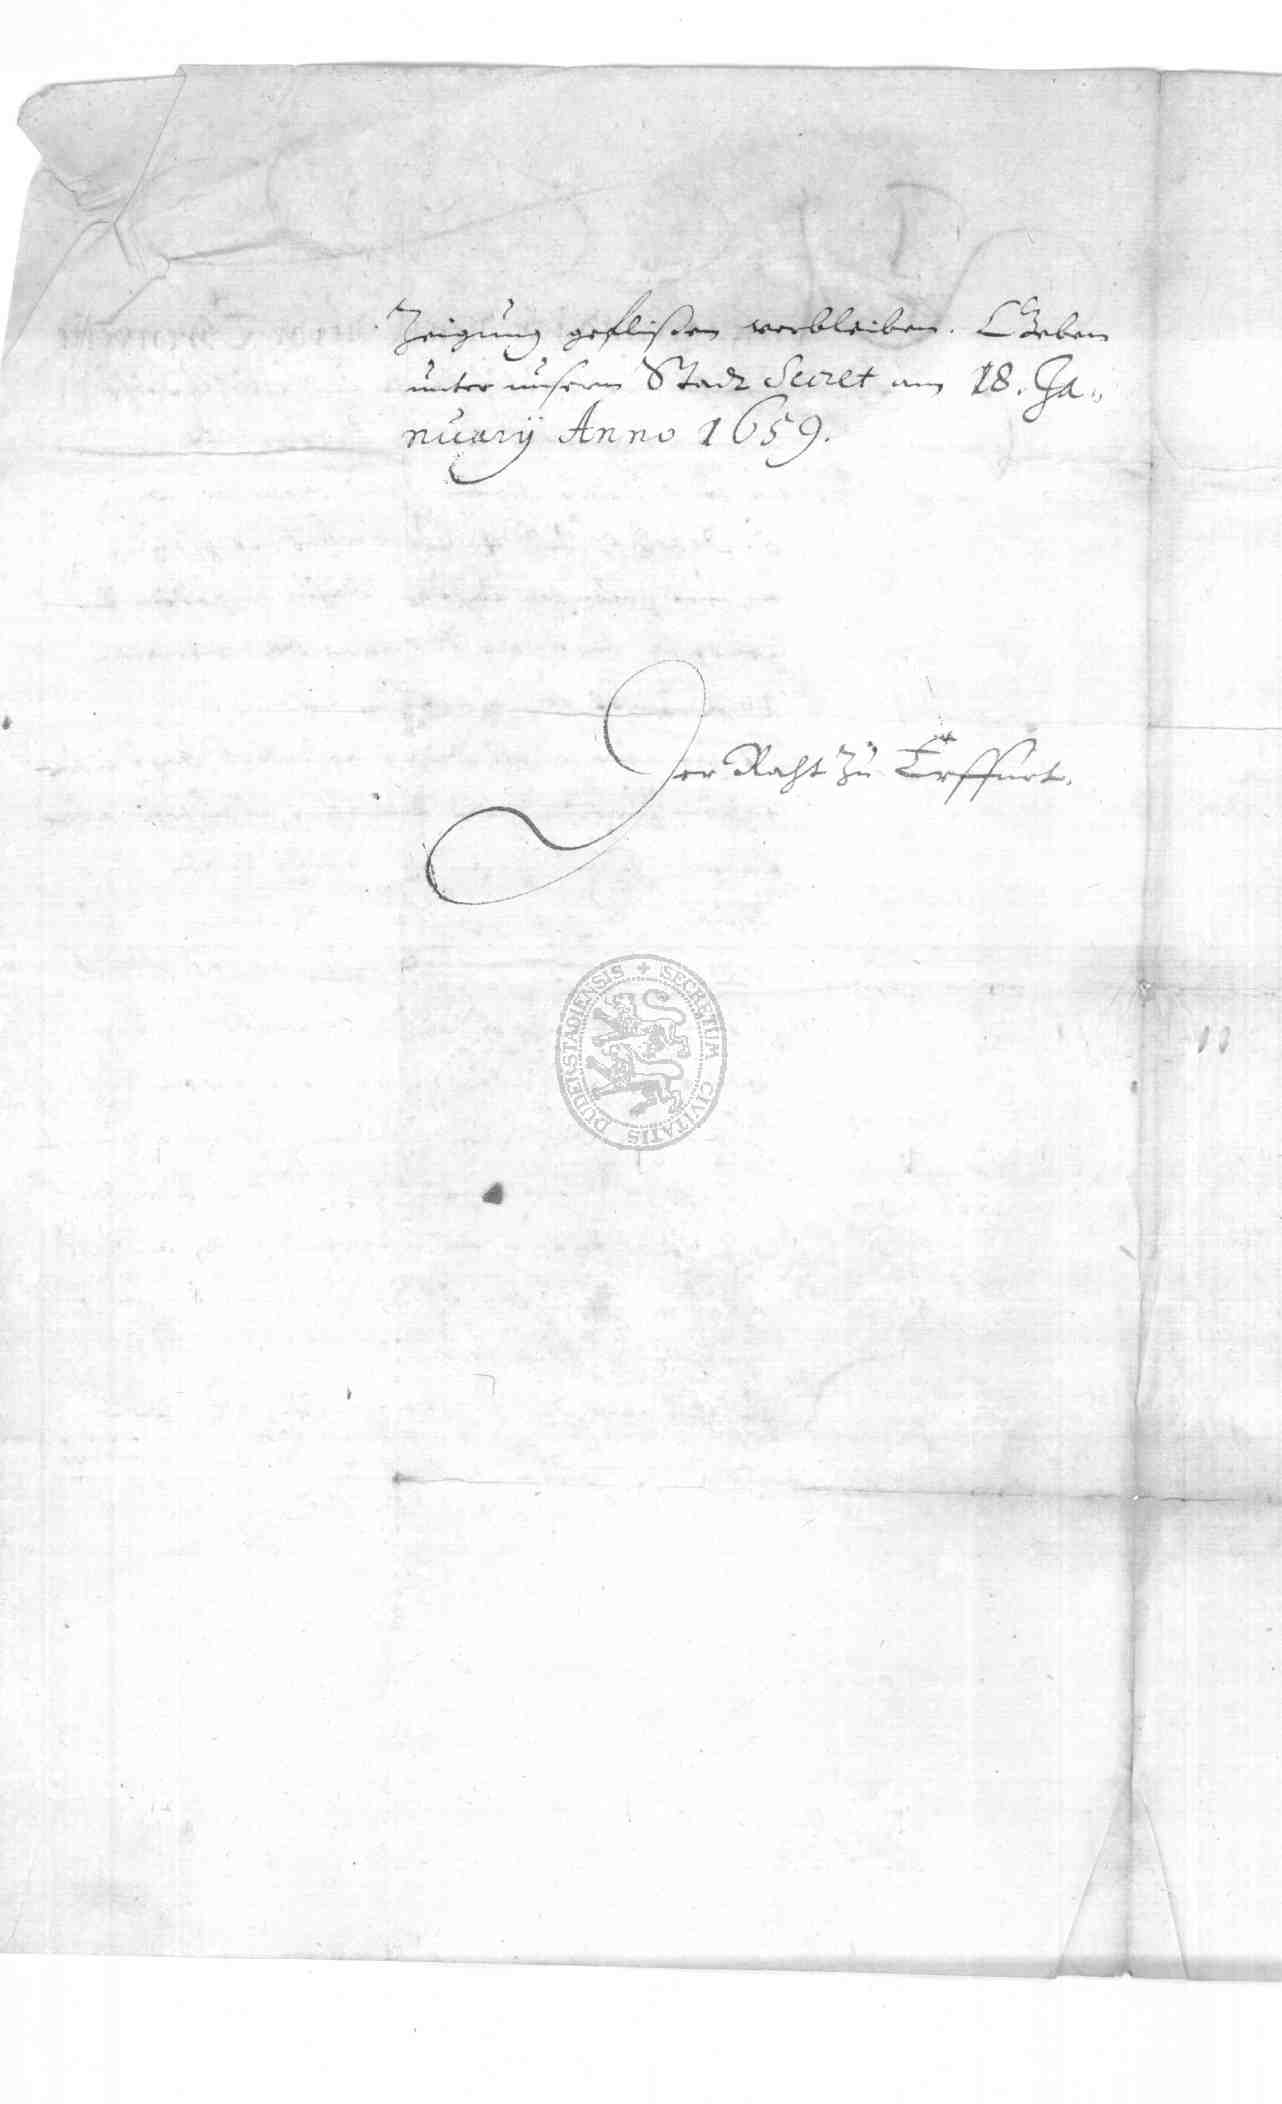 Zeigung geflißen verbleiben. Geben
unter unserm Stadt Secret am 18. Ja„
nuarij Anno 1659.
Der Raht zu Erffurt.
SECRETUM CIVITATIS DUDERSTADIENSIS